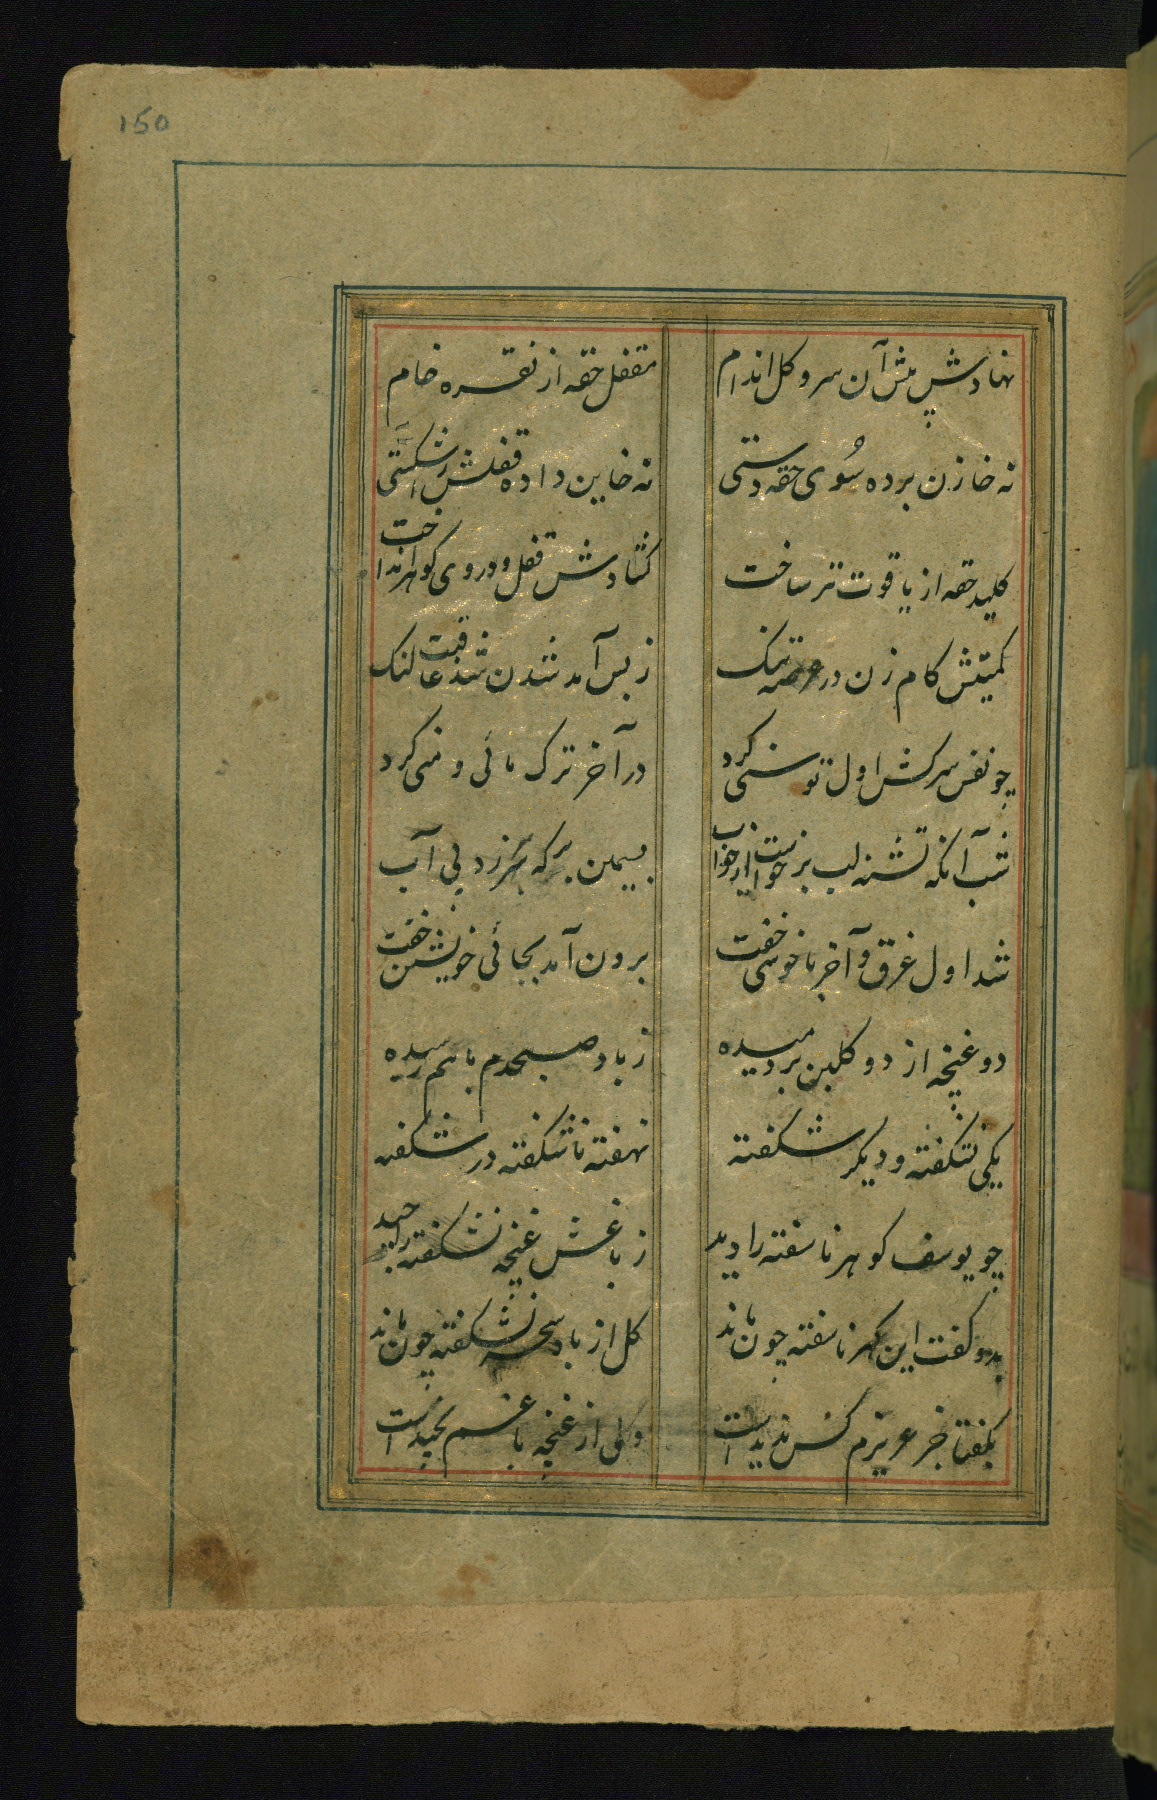 150
نهادش پیش آن سرو کل اندام
مقفل حقه از نقره خام
نه خازن برده سُوی حقه دستی
نه خاین داده قفلش را شکستی
کلید حقه از یاقوت تر ساخت
کشادش قفل و در وی کوهر انداخت
کمیتش کام زن در عرصه تنک
ز بس آمد شدن شد عاقبت لنک
چو نفس سرکش اول توسنی کرد
در آخر ترک مائی و منی کرد
شب آنکه تشنه لب برخواست از خواب
بسیمین برکه سر زد پی آب
شد اول غرق و آخر با خوشی خفت
برون آمد بجائی خویشتن خفت
دو غنچه از دو کلبن بر دمیده
ز باد صبحدم با هم رسیده
یکی نشکفته و دیکر شکفته
نهفته ناشکفته در شکفته
چو یوسف کوهر ناسفته را دید
ز باغش غنچه نشکفته را چید
بدو کفت این کهر ناسفته چون ماند
کل از باد سحر نشکفته چون ماند
بکفتا جز عزیزم کس ندیدست
ولی از غنچه باغم نچیدست